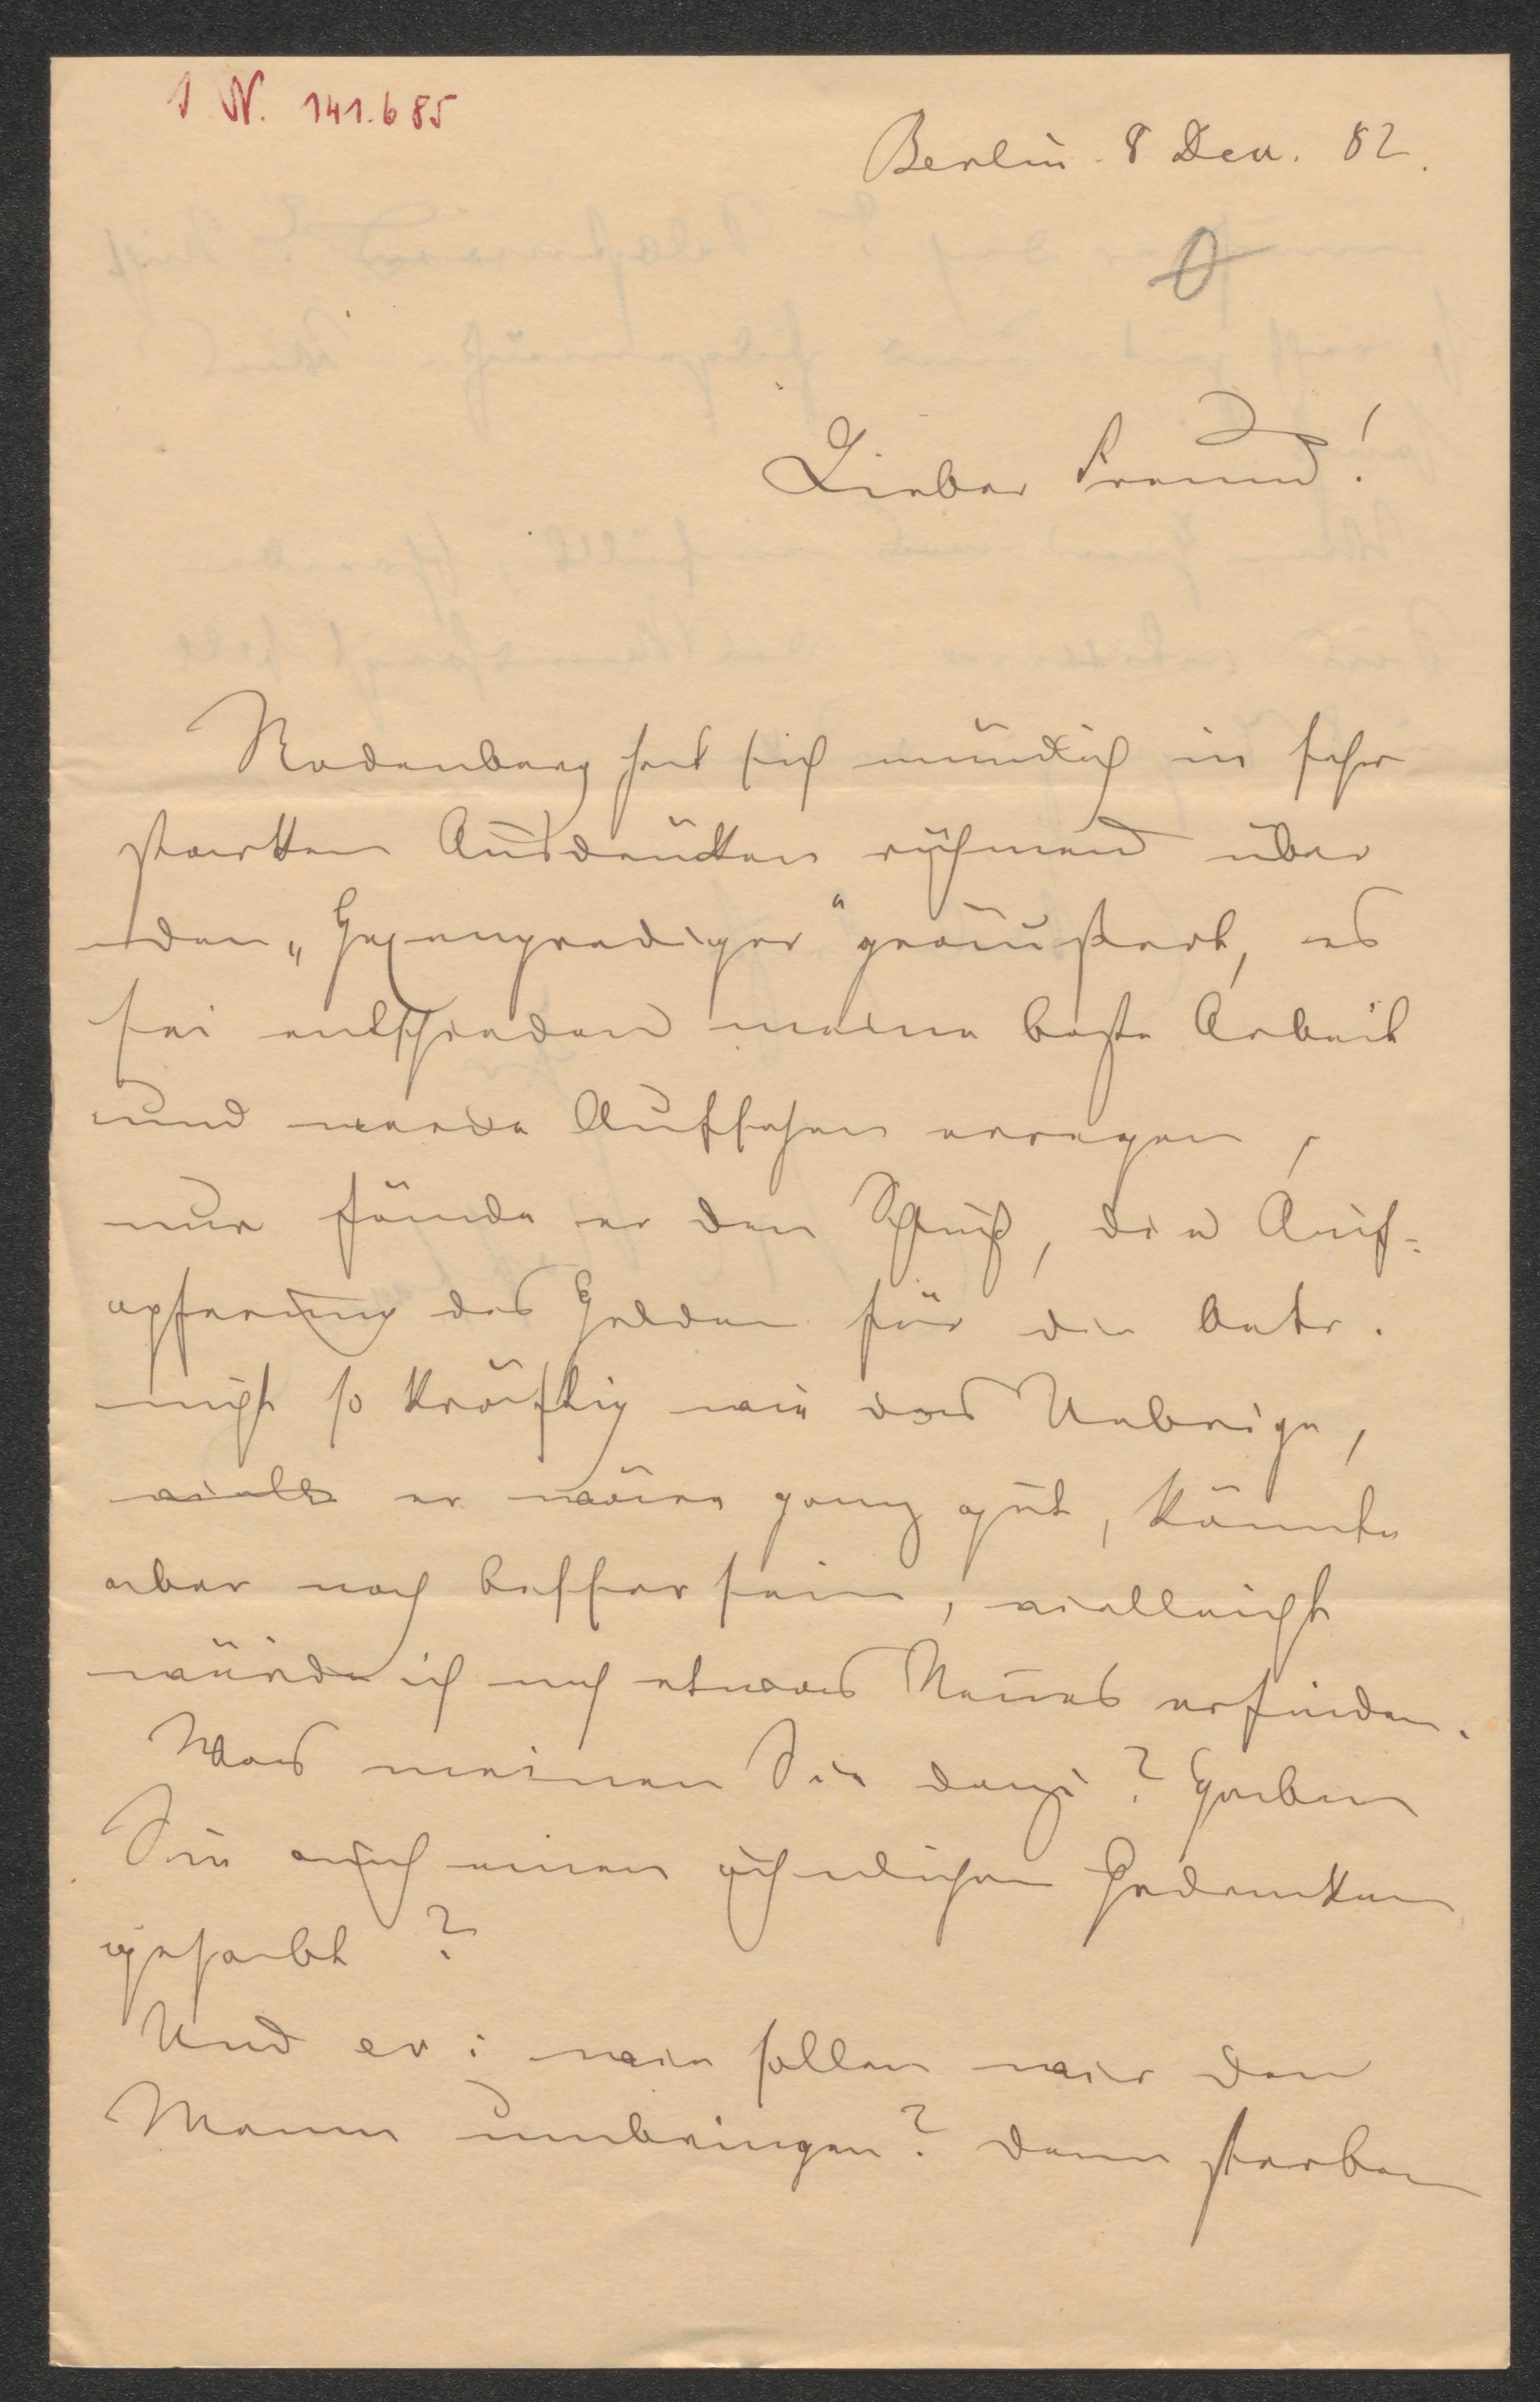 I. N. 141.685
Berlin. 8 Dec. 82.
Lieber Freund!
Rodenberg hat sich mündlich in sehr
starken Ausdrücken rühmend über
den „Hexenprediger“ geäußert, es
sei entschieden meine beste Arbeit
und werde Aufsehen erregen,
nur fände er den Schluß, die Auf-
opferung des Helden für die
nicht so kräftig wie das Uebrige,
er wäre ganz gut, könnte
aber noch besser sein, vielleicht
würde ich noch etwas Neues erfinden.
Was meinen Sie dazu? Haben
Sie auch einen ähnlichen Gedanken
gehabt?
Und wie sollen wir den
Mann umbringen? Denn sterben